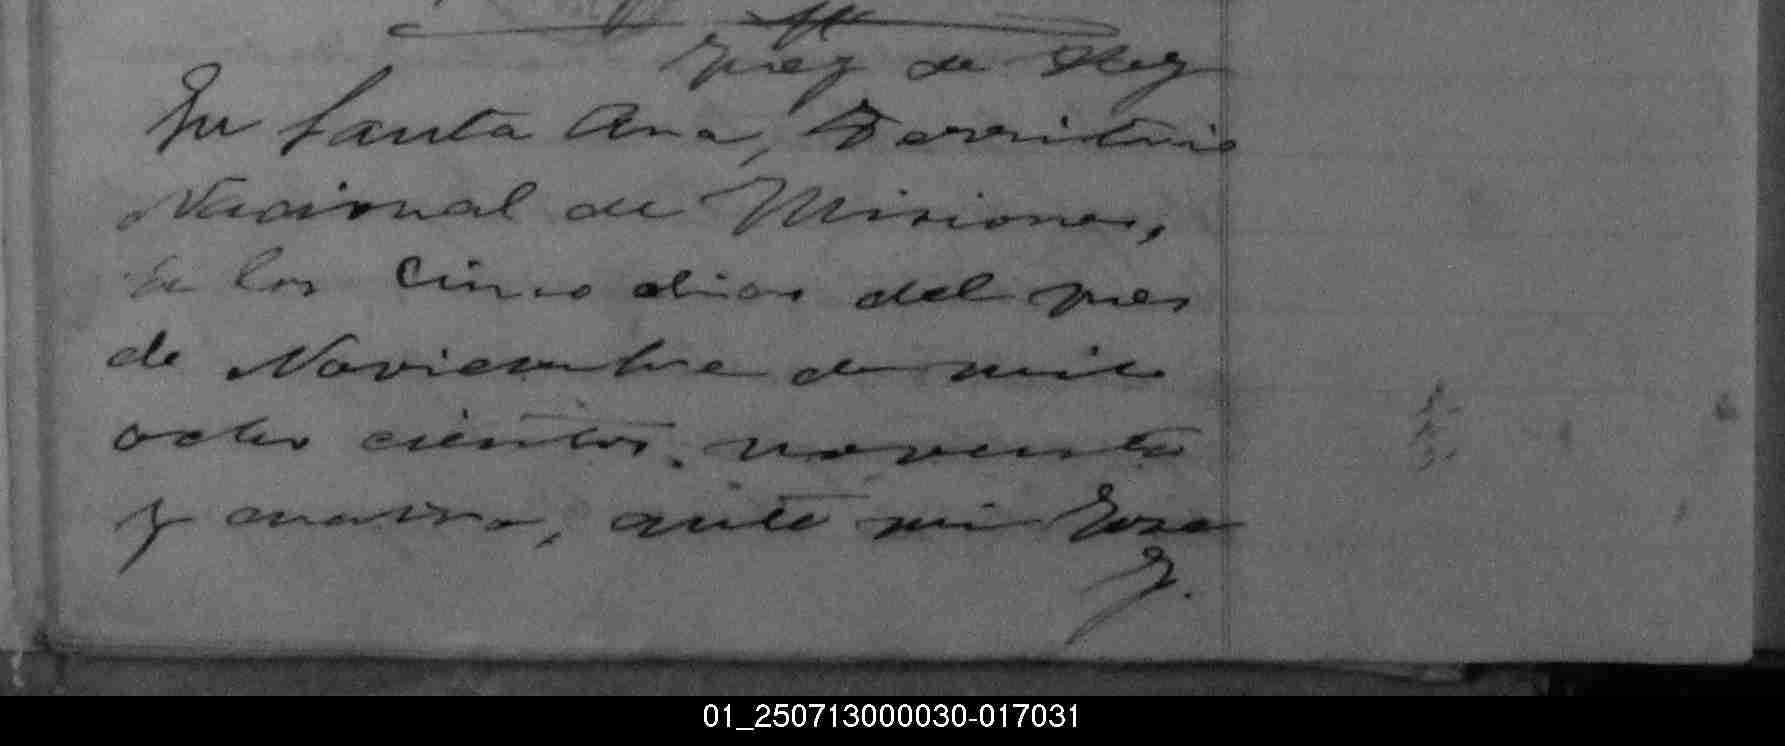 Juez de Paz
En Santa Ana, Territorio
Nacional de Misiones,
a los Cinco dias del mes
de Noviembre de mil
ocho cientos noventa
y cuatro, ante mi Jose
J.
01_250713000030-017031